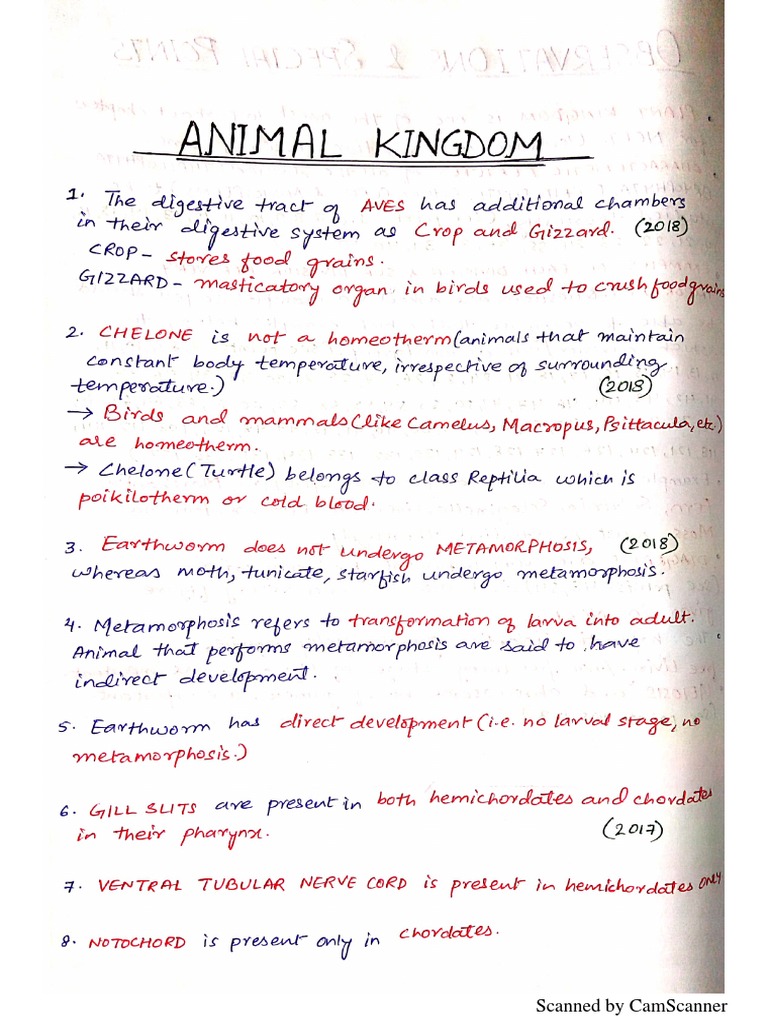 ANIMAL KINGDOM
1. The digestive tract of AVES has additional chambers
in their digestive system as Crop and Gizzard. (2018)
CROP - stores food grains.
GIZZARD - masticatory organ in birds used to crush food grains
2. CHELONE is not a homeotherm (animals that maintain
constant body temperature, irrespective of surrounding
temperature.) (2018)
→ Birds and mammals (like Camelus, Macropus, Psittacula, etc.)
are homeotherm.
→ Chelone (Turtle) belongs to class Reptilia which is
poikilotherm or cold blood.
3. Earthworm does not undergo METAMORPHOSIS, (2018)
whereas moth, tunicate, starfish undergo metamorphosis.
4. Metamorphosis refers to transformation of larva into adult.
Animal that performs metamorphosis are said to have
indirect development.
5. Earthworm has direct development (i.e. no larval stage, no
metamorphosis.)
6. GILL SLITS are present in both hemichordates and chordates
in their pharynx. (2017)
7. VENTRAL TUBULAR NERVE CORD is present in hemichordates ONLY
8. NOTOCHORD is present only in chordates.
Scanned by CamScanner